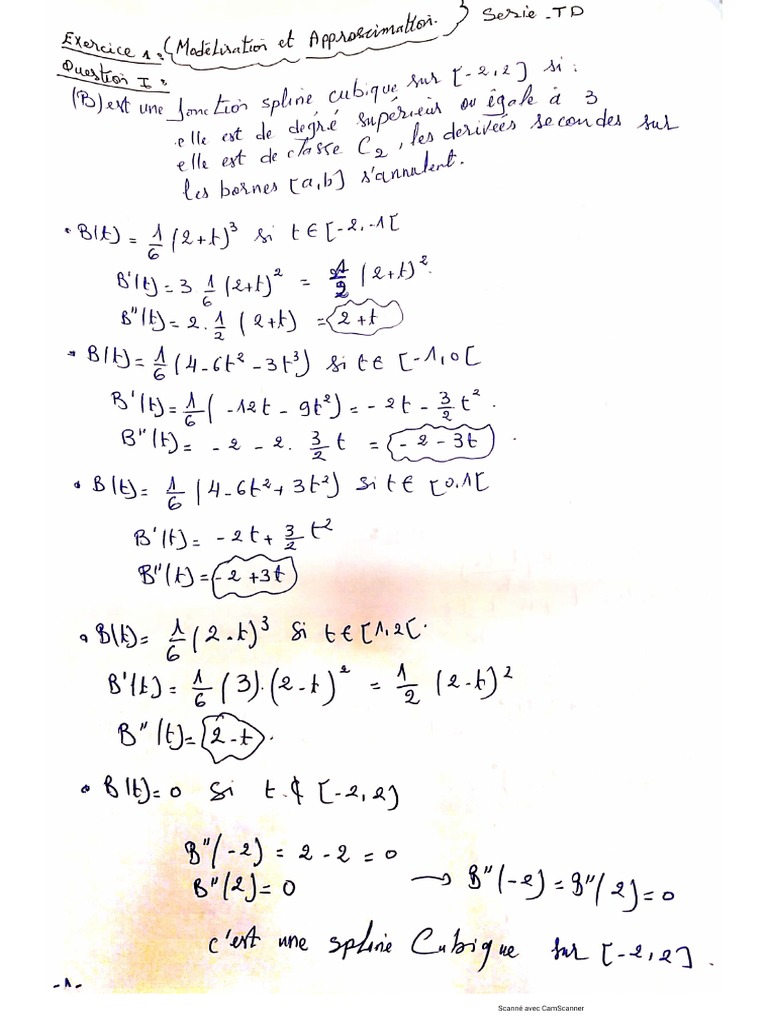 Exercice 1: (Modélisation et Approximation.) Serie -TD
Question I:
(B) est une fonction spline cubique sur [-2,2] si :
. elle est de degré supérieur ou égale à 3
elle est de classe C2, les derivées secondes sur
les bornes [a,b] s'annulent.
• B(t) = 1/6 (2+t)^3 si t ∈ [-2,-1[
B'(t) = 3 1/6 (2+t)^2 = 1/2 (2+t)^2.
B''(t) = 2. 1/2 (2+t) = 2+t
• B(t) = 1/6 (4-6t^2-3t^3) si t ∈ [-1,0[
B'(t) = 1/6 (-12t - 9t^2) = -2t - 3/2 t^2.
B''(t) = -2 - 2. 3/2 t = -2-3t .
• B(t) = 1/6 (4-6t^2+3t^2) si t ∈ [0.1[
B'(t) = -2t + 3/2 t^2
B''(t) = -2+3t
• B(t) = 1/6 (2-t)^3 si t ∈ [1,2[.
B'(t) = 1/6 (3).(2-t)^2 = 1/2 (2-t)^2
B''(t) = 2-t.
• B(t) = 0 si t ∉ [-2,2]
B''(-2) = 2-2 = 0
B''(2) = 0 → B''(-2) = B''(2) = 0
c'est une spline Cubique sur [-2,2].
-1-
Scanné avec CamScanner